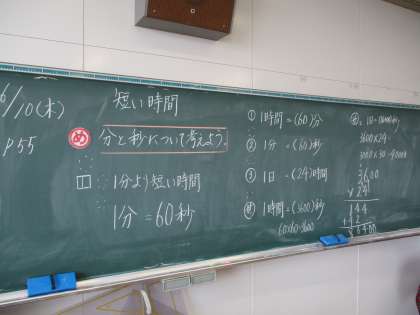 6/10(木)
P55
短い時間
め 分と秒について考えよう。
1 1分より短い時間
1分 = 60秒
① 1時間 = (60)分
② 1分 = (60)秒
③ 1日 = (24)時間
1時間 = (3600)秒
60×60=3600
3600×24
3600
× 24
144